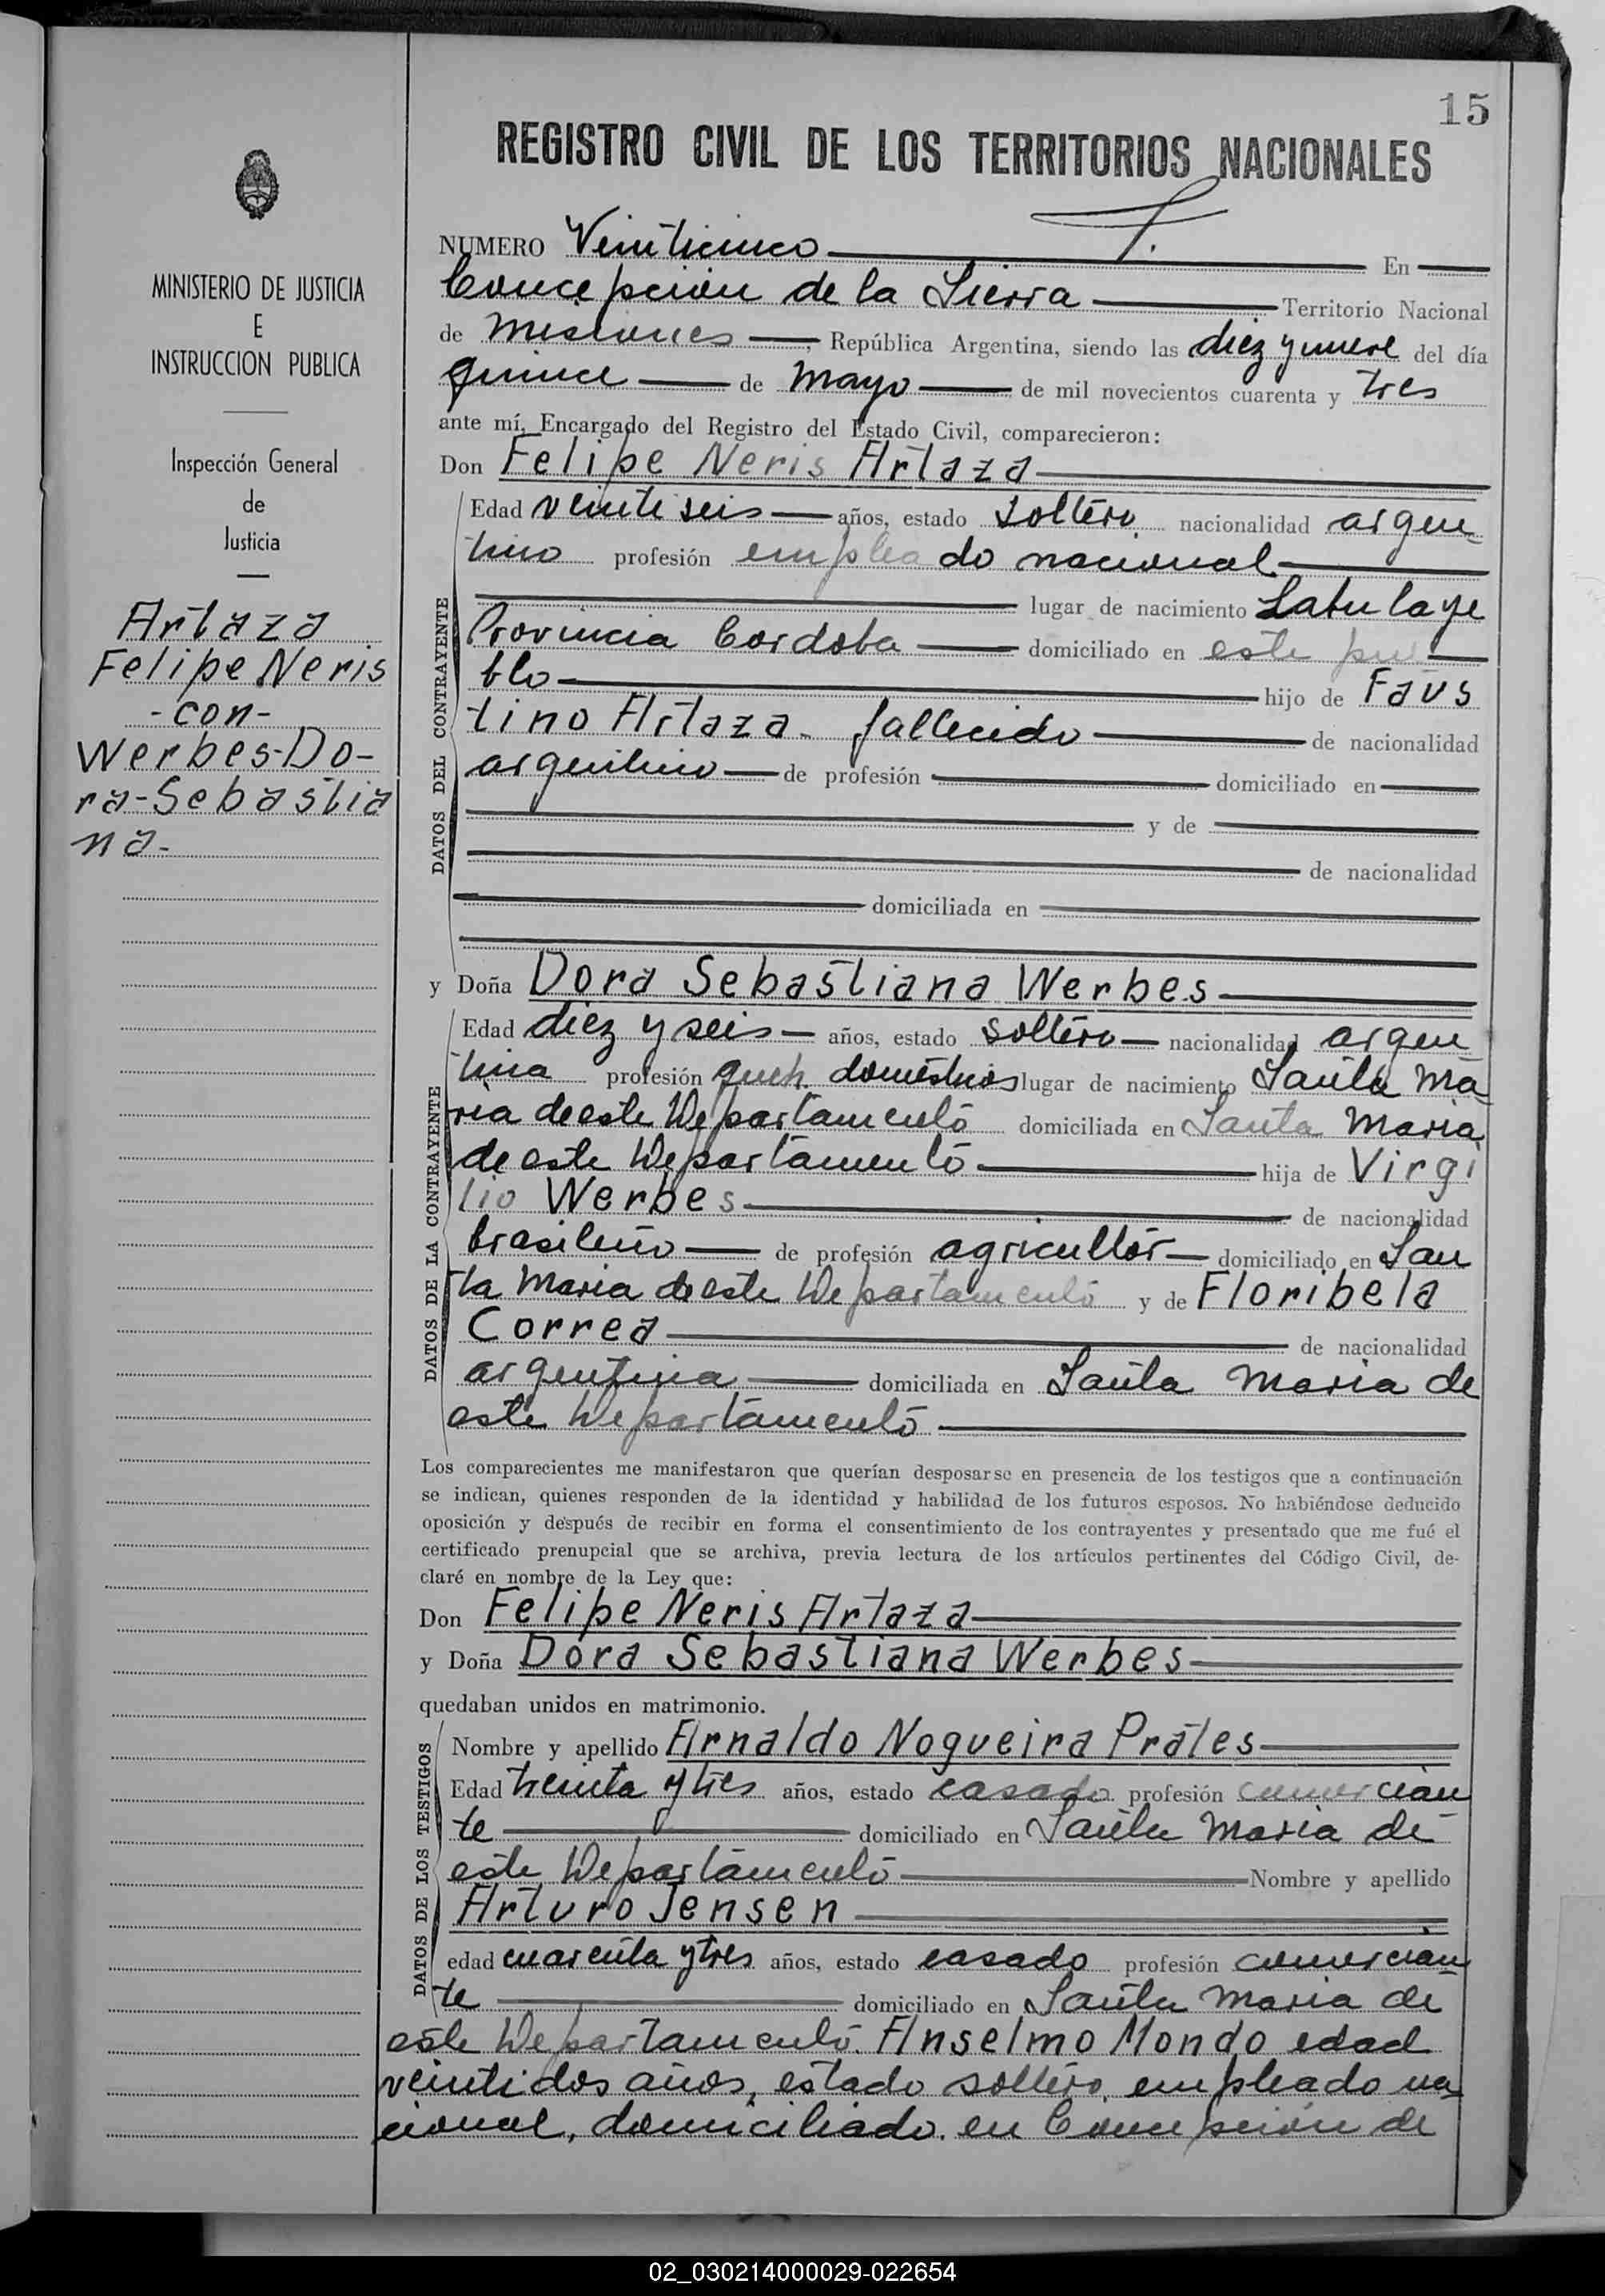 15
REGISTRO CIVIL DE LOS TERRITORIOS NACIONALES
MINISTERIO DE JUSTICIA
E
INSTRUCCION PUBLICA
Inspección General
de
Justicia
Artaza
Felipe Neris
-con-
Werbes-Do-
ra-Sebastia
na-
NUMERO Veinticinco En
Concepcion de la Sierra Territorio Nacional
de Misiones, República Argentina, siendo las diez y nueve del día
quince de Mayo de mil novecientos cuarenta y tres
ante mí, Encargado del Registro del Estado Civil, comparecieron:
Don Felipe Neris Artaza
DATOS DEL CONTRAYENTE
Edad veinti seis años, estado soltero nacionalidad argen
tino profesión empleado nacional
lugar de nacimiento Labulaye
Provincia Cordoba domiciliado en este pue
blo hijo de Faus
tino Artaza - fallecido de nacionalidad
argentino de profesión domiciliado en
y de
de nacionalidad
domiciliada en
y Doña Dora Sebastiana Werbes
DATOS DE LA CONTRAYENTE
Edad diez y seis años, estado soltero nacionalidad argen
tina profesión queh. domésticos lugar de nacimiento Santa Ma
ria de este Departamento domiciliada en Santa Maria
de este Departamento hija de Virgi
lio Werbes de nacionalidad
brasileño de profesión agricultor domiciliado en San
ta Maria de este Departamento y de Floribela
Correa de nacionalidad
argentina domiciliada en Santa Maria de
este Departamento
Los comparecientes me manifestaron que querían desposarse en presencia de los testigos que a continuación
se indican, quienes responden de la identidad y habilidad de los futuros esposos. No habiéndose deducido
oposición y después de recibir en forma el consentimiento de los contrayentes y presentado que me fué el
certificado prenupcial que se archiva, previa lectura de los artículos pertinentes del Código Civil, de-
claré en nombre de la Ley que:
Don Felipe Neris Artaza
y Doña Dora Sebastiana Werbes
quedaban unidos en matrimonio.
DATOS DE LOS TESTIGOS
Nombre y apellido Arnaldo Nogueira Prates
Edad treinta y tres años, estado casado profesión comercian
te domiciliado en Santa Maria de
este Departamento Nombre y apellido
Arturo Jensen
edad cuarenta y tres años, estado casado profesión comercian
te domiciliado en Santa Maria de
este Departamento. Anselmo Mondo edad
veintidos años, estado soltero, empleado na
cional, domiciliado en Concepción de
02_030214000029-022654